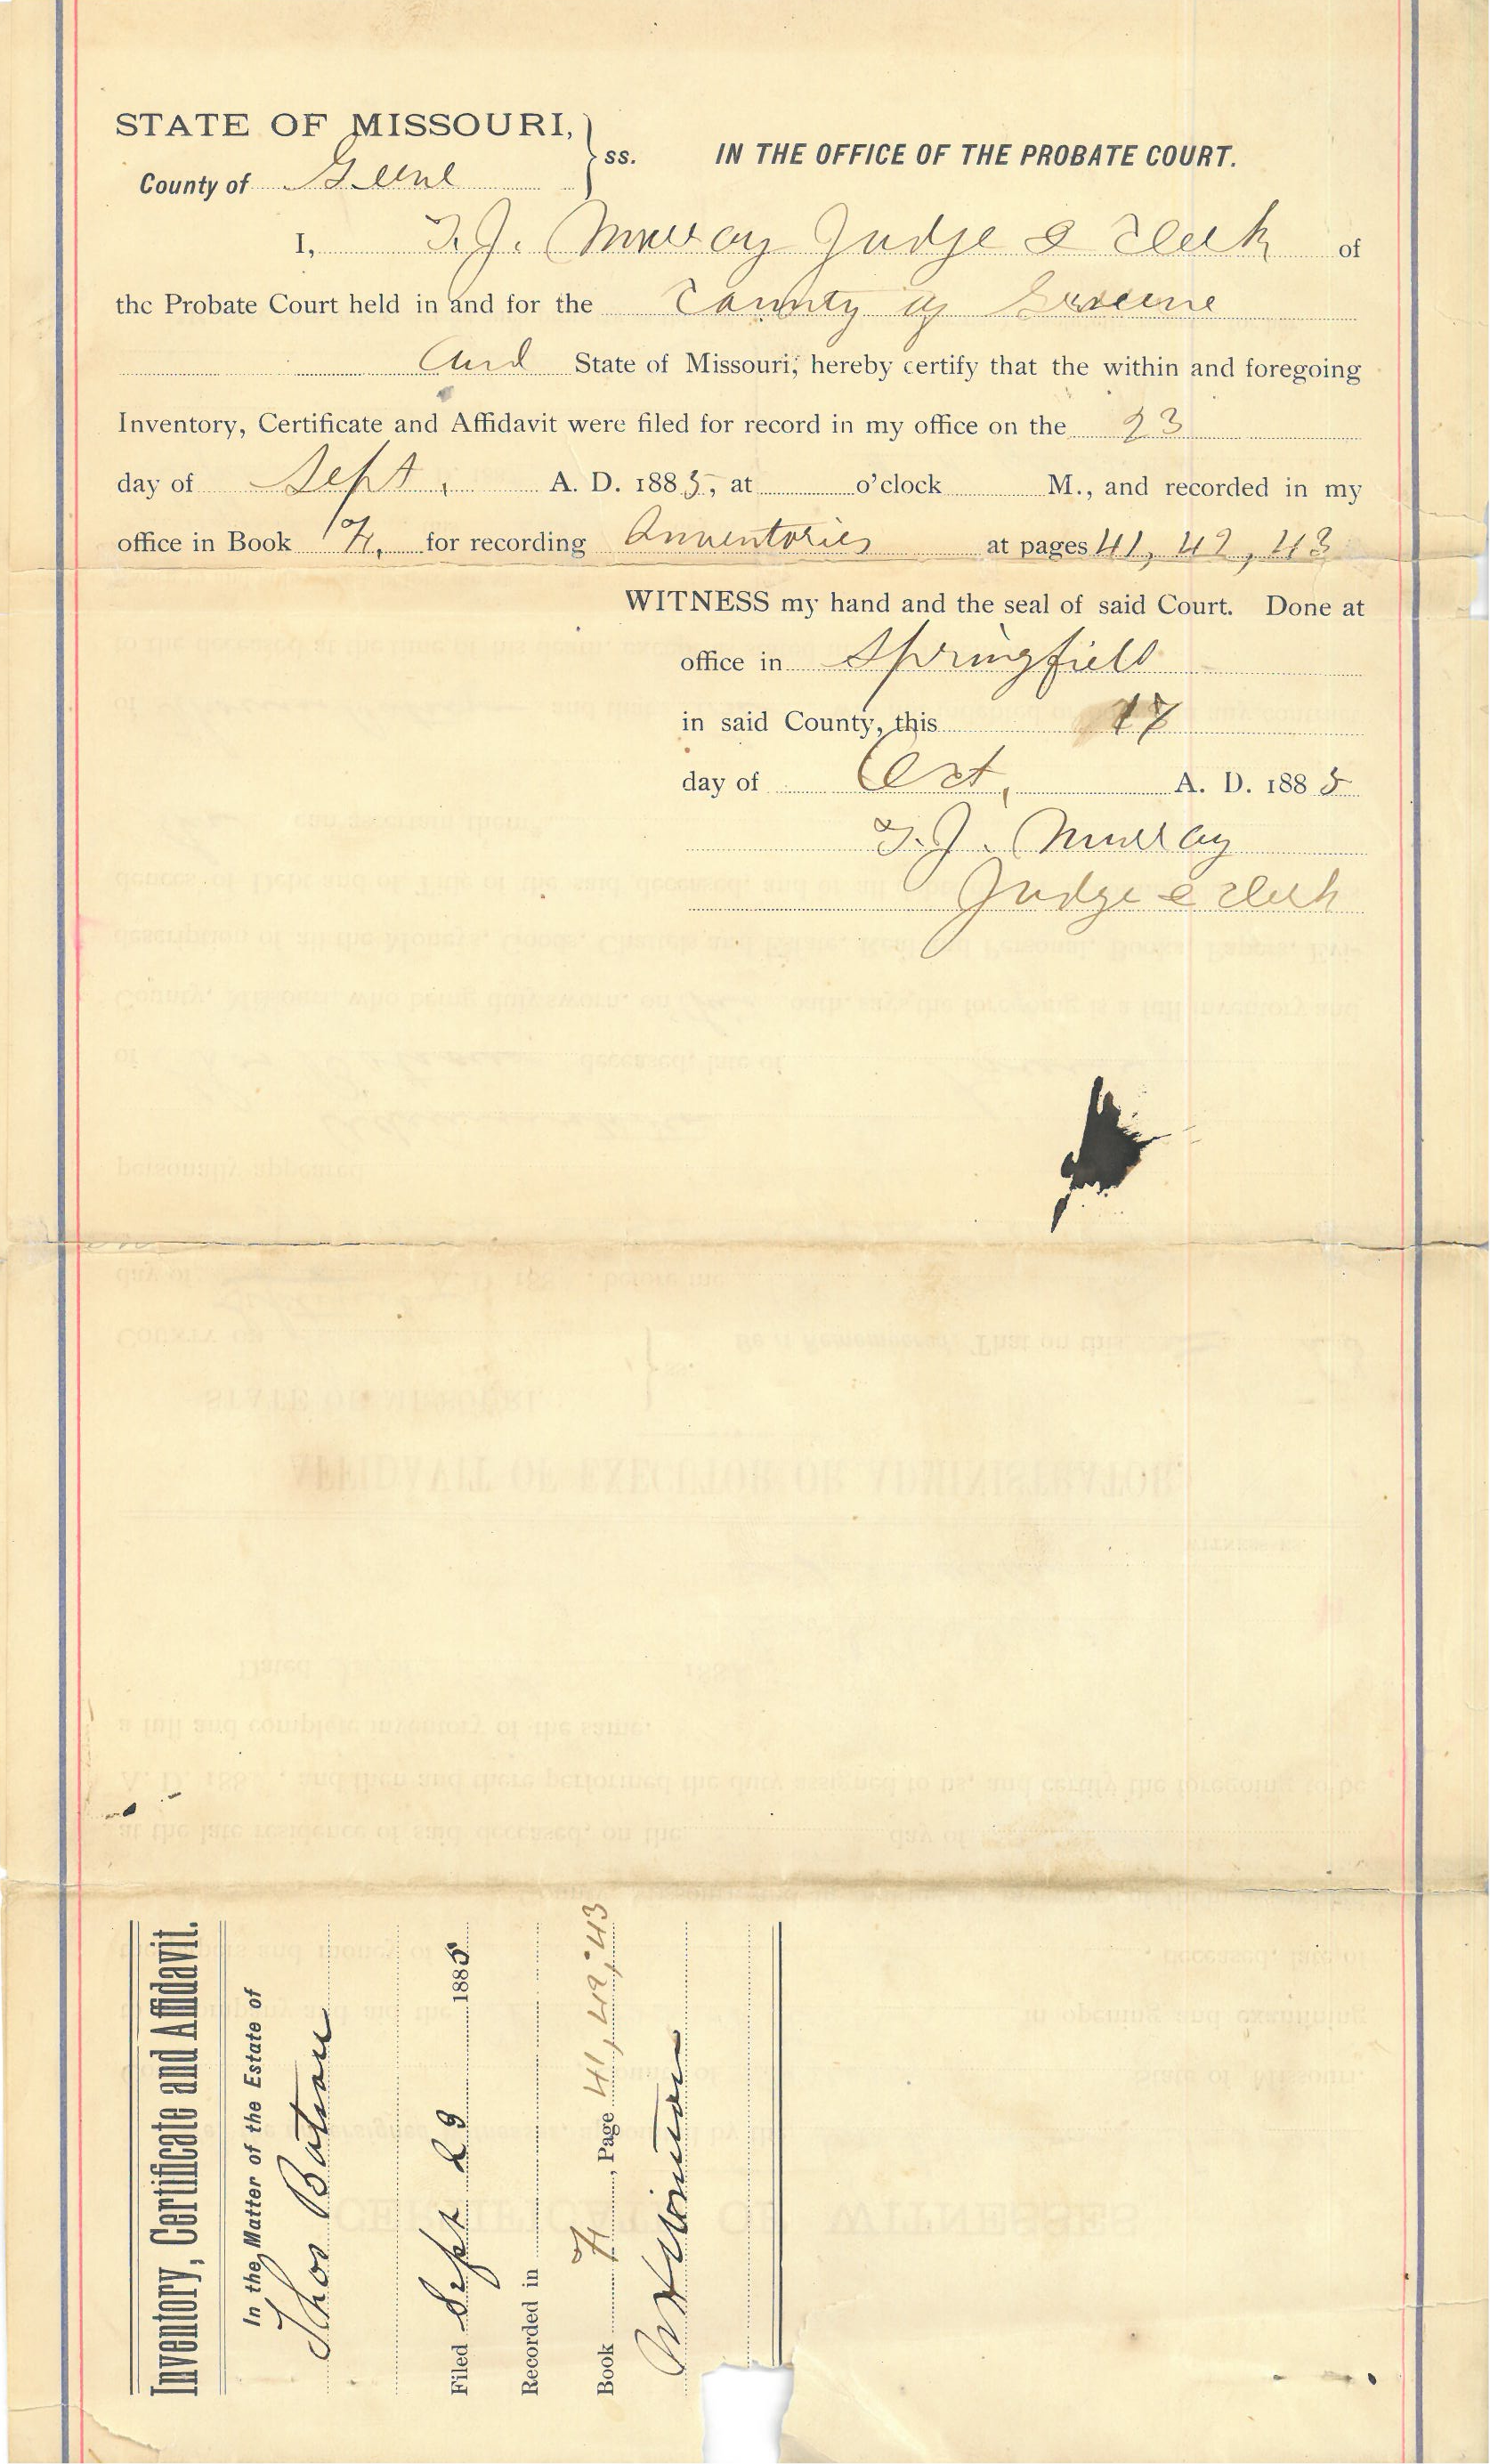 STATE OF MISSOURI, } ss. IN THE OFFICE OF THE PROBATE COURT.
County of Greene
I, T. J. Murray Judge & Clerk of
the Probate Court held in and for the County of Greene
And State of Missouri, hereby certify that the within and foregoing
Inventory, Certificate and Affidavit were filed for record in my office on the 23
day of Sept, A. D. 1885, at o'clock M., and recorded in my
office in Book F, for recording Inventories at pages 41, 42, 43
WITNESS my hand and the seal of said Court. Done at
office in Springfield
in said County, this 17
day of Oct, A. D. 1885
T. J. Murray
Judge & Clerk
Inventory, Certificate and Affidavit.
In the Matter of the Estate of
Thos Bateau
Filed Sept 23 1885
Recorded in
Book F, Page 41, 42, 43